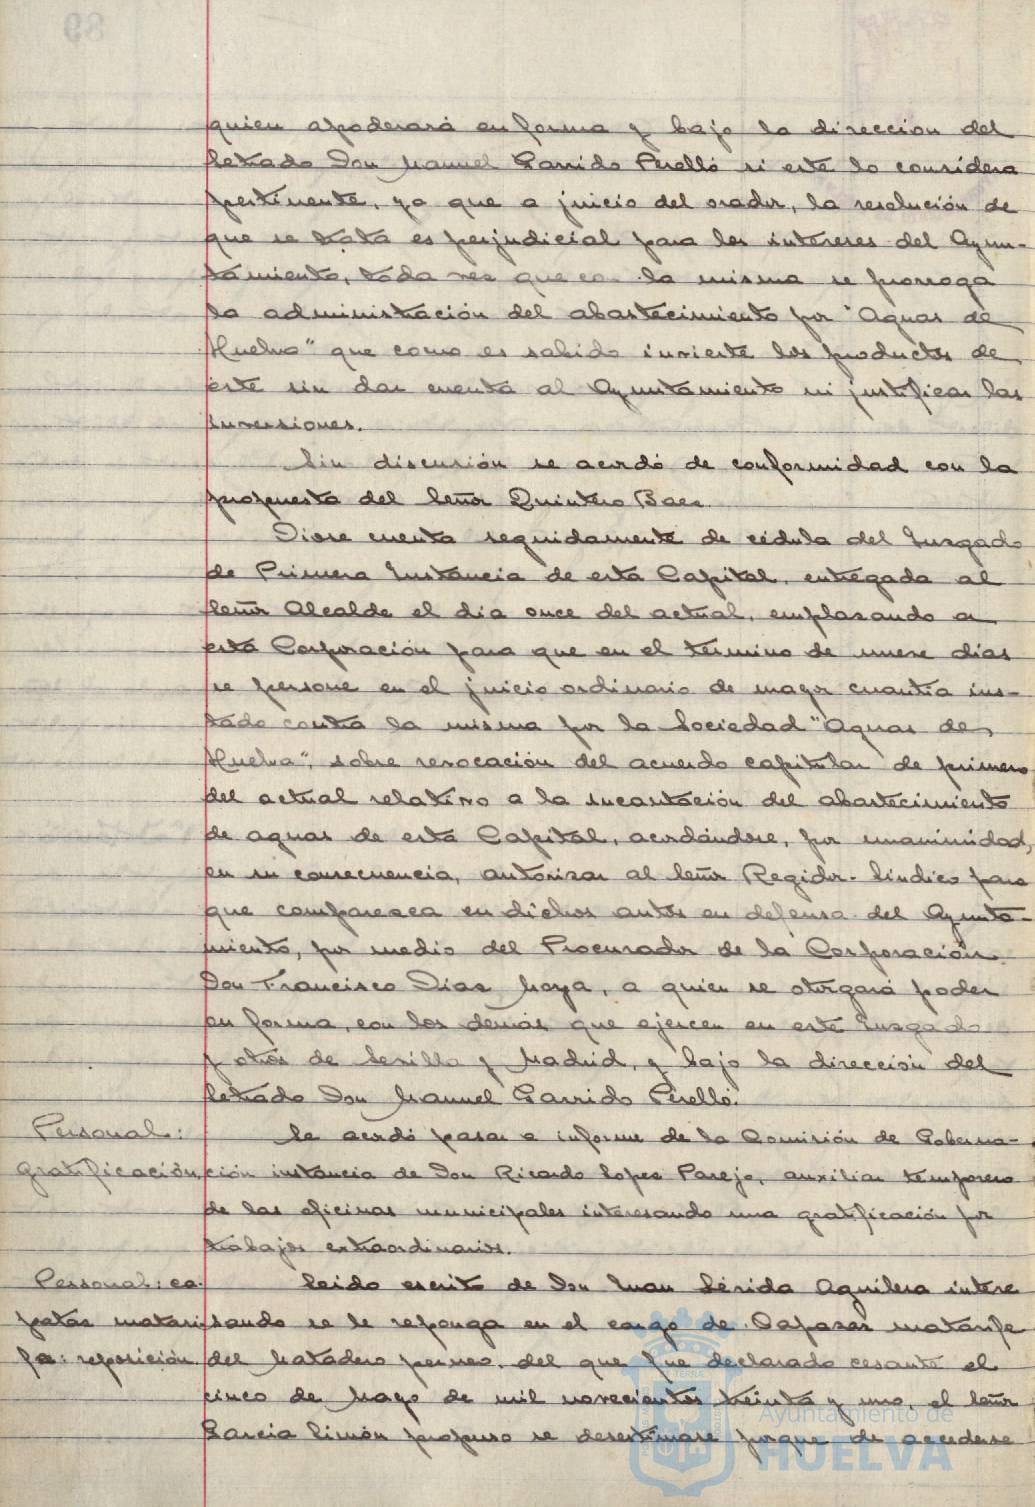 quien apoderará en forma y bajo la dirección del
letrado Don Manuel Garrido Perelló si este lo considera
pertinente, ya que a juicio del orador, la resolución de
que se trata es perjudicial para los intereses del Ayun-
tamiento, toda vez que con la misma se prorroga
la administración del abastecimiento por "Aguas de
Huelva" que como es sabido invierte los productos de
éste sin dar cuenta al Ayuntamiento ni justificar las
inversiones.
Sin discusión se acordó de conformidad con la
propuesta del Señor Quintero Baez.
Diose cuenta seguidamente de cédula del Juzgado
de Primera Instancia de esta Capital, entregada al
Señor Alcalde el día once del actual, emplazando a
esta Corporación para que en el término de nueve días
se persone en el juicio ordinario de mayor cuantía ins-
tado contra la misma por la Sociedad "Aguas de
Huelva", sobre revocación del acuerdo capitular de primero
del actual relativo a la incautación del abastecimiento
de aguas de esta Capital, acordándose, por unanimidad,
en su consecuencia, autorizar al Señor Regidor-Síndico para
que comparezca en dichos autos en defensa del Ayunta-
miento, por medio del Procurador de la Corporación
Don Francisco Díaz Moya, a quien se otorgará poder
en forma, con los demás que ejercen en este Juzgado
y otros de Sevilla y Madrid, y bajo la dirección del
letrado Don Manuel Garrido Perelló.
Personal: Se acordó pasar a informe de la Comisión de Goberna-
gratificación, ción instancia de Don Ricardo López Parejo, auxiliar temporero
de las oficinas municipales interesando una gratificación por
trabajos extraordinarios.
Personal: ca- Leido escrito de Don Juan Sérida Aguilera intere
pataz matari- sando se le reponga en el cargo de Capataz matarife
fe: reposición del Matadero porcino, del que fue declarado cesante el
cinco de Mayo de mil novecientos treinta y uno, el Señor
García Limón propuso se desestimase porque de accederse
Ayuntamiento de
HUELVA